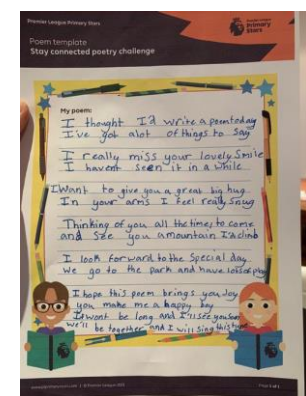 Premier League Primary Stars
Premier League
Primary
Stars
Poem template
Stay connected poetry challenge
My poem:
I thought I'd write a poem today
I've got alot of things to say
I really miss your lovely Smile
I havent seen it in a while
I Want to give you a great big hug
In your arms I feel really Snug
Thinking of you all the time, to come
and See you a mountain I'd climb
I look forward to the Special day
We go to the park and have lots of play
I hope this poem brings you Joy
you make me a happy boy
It wont be long and I'll see you Soon
We'll be together and I will Sing this tune